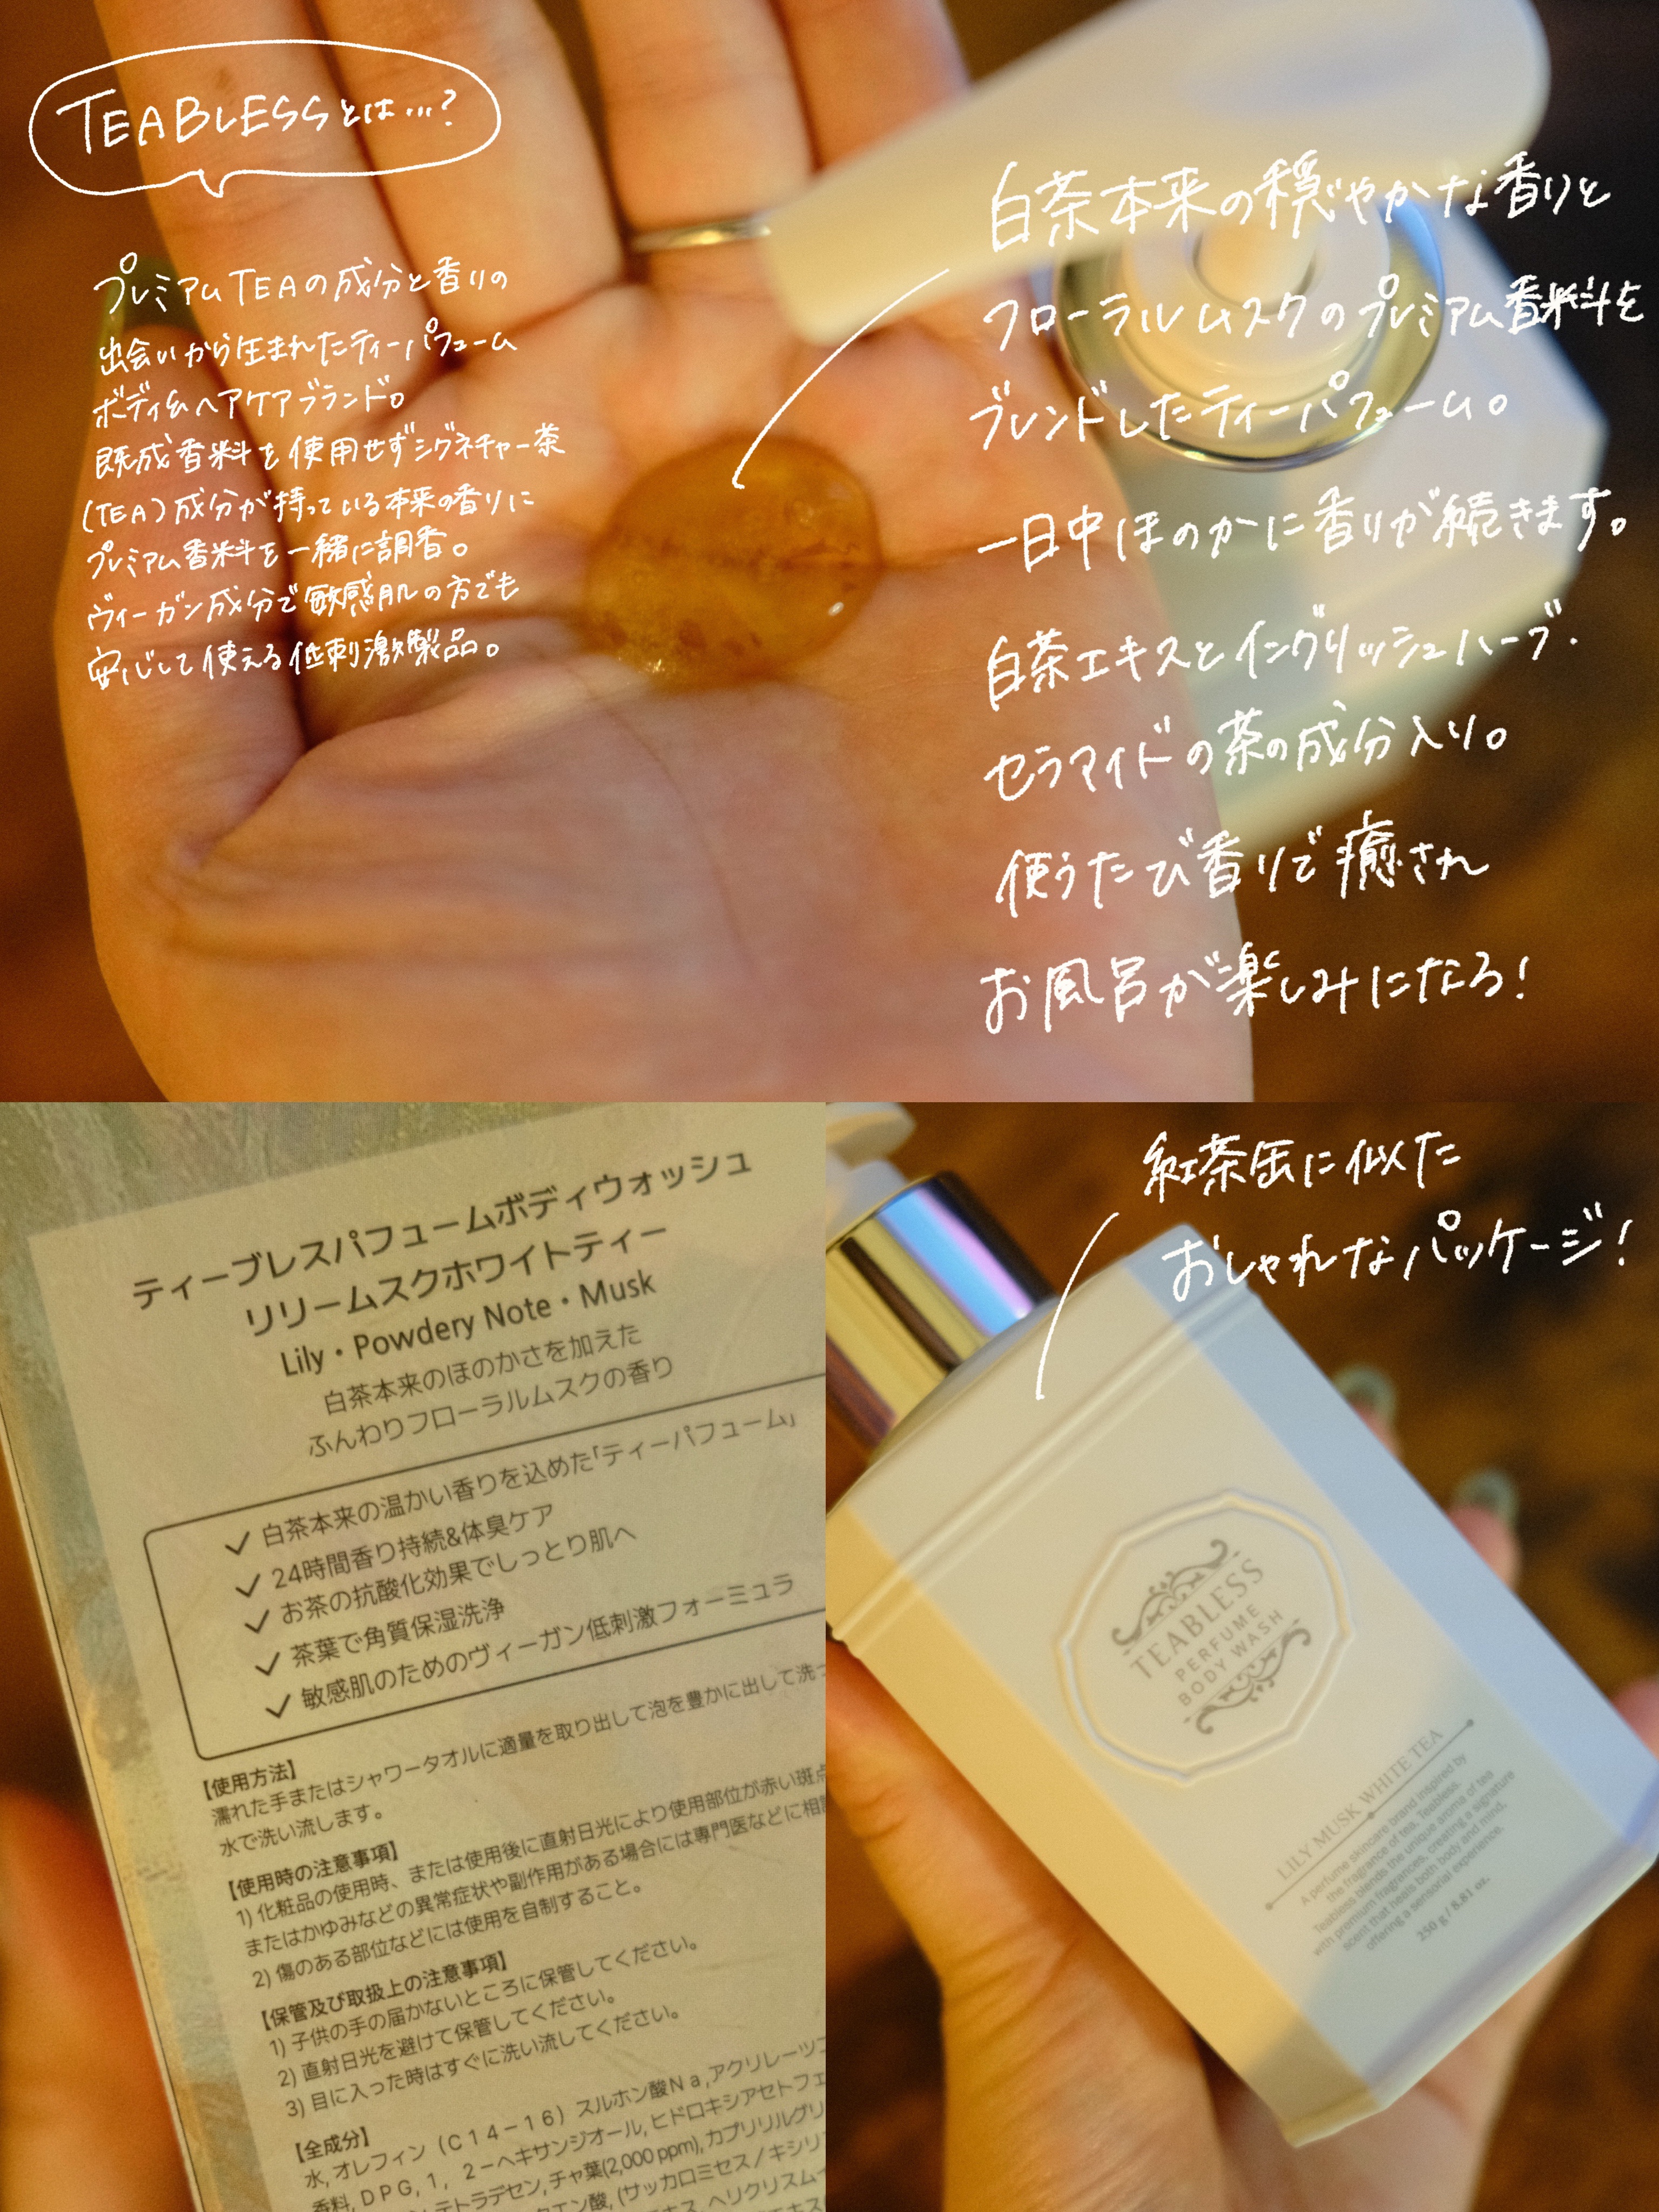 TEABLESSとは…?
プレミアムTEAの成分と香りの
出会いから生まれたティーパフューム
ボディ&ヘアケアブランド。
既成香料を使用せずシグネチャー茶
(TEA)成分が持っている本来の香りに
プレミアム香料を一緒に調香。
ヴィーガン成分で敏感肌の方でも
安心して使える低刺激製品。
白茶本来の穏やかな香りと
フローラルムスクのプレミアム香料を
ブレンドしたティーパフューム。
一日中ほのかに香りが続きます。
白茶エキスとイングリッシュハーブ・
セラマイドの茶の成分入り。
使うたび香りで癒され
お風呂が楽しみになる!
ティーブレスパフュームボディウォッシュ
リリームスクホワイトティー
Lily・Powdery Note・Musk
白茶本来のほのかさを加えた
ふんわりフローラルムスクの香り
✓ 白茶本来の温かい香りを込めた「ティーパフューム」
✓ 24時間香り持続&体臭ケア
✓ お茶の抗酸化効果でしっとり肌へ
✓ 茶葉で角質保湿洗浄
✓ 敏感肌のためのヴィーガン低刺激フォーミュラ
【使用方法】
濡れた手またはシャワータオルに適量を取り出して泡を豊かに出して洗っ
水で洗い流します。
【使用時の注意事項】
1) 化粧品の使用時、または使用後に直射日光により使用部位が赤い斑点
またはかゆみなどの異常症状や副作用がある場合には専門医などに相談
2) 傷のある部位などには使用を自制すること。
【保管及び取扱上の注意事項】
1) 子供の手の届かないところに保管してください。
2) 直射日光を避けて保管してください。
3) 目に入った時はすぐに洗い流してください。
【全成分】
水, オレフィン（C14-16）スルホン酸Na, アクリレーツコ
香料, DPG, 1, 2-ヘキサンジオール, ヒドロキシアセトフェ
テトラデセン, チャ葉(2,000 ppm), カプリリルグリ
クエン酸, (サッカロミセス/キシリ
エキス, ヘリクリスムイ
紅茶缶に似た
おしゃれなパッケージ!
TEABLESS
PERFUME
BODY WASH
LILY MUSK WHITE TEA
A perfume skincare brand inspired by
the fragrance of tea, Teabless.
Teabless blends the unique aroma of tea
with premium fragrances, creating a signature
scent that heals both body and mind,
offering a sensorial experience.
250 g / 8.81 oz.